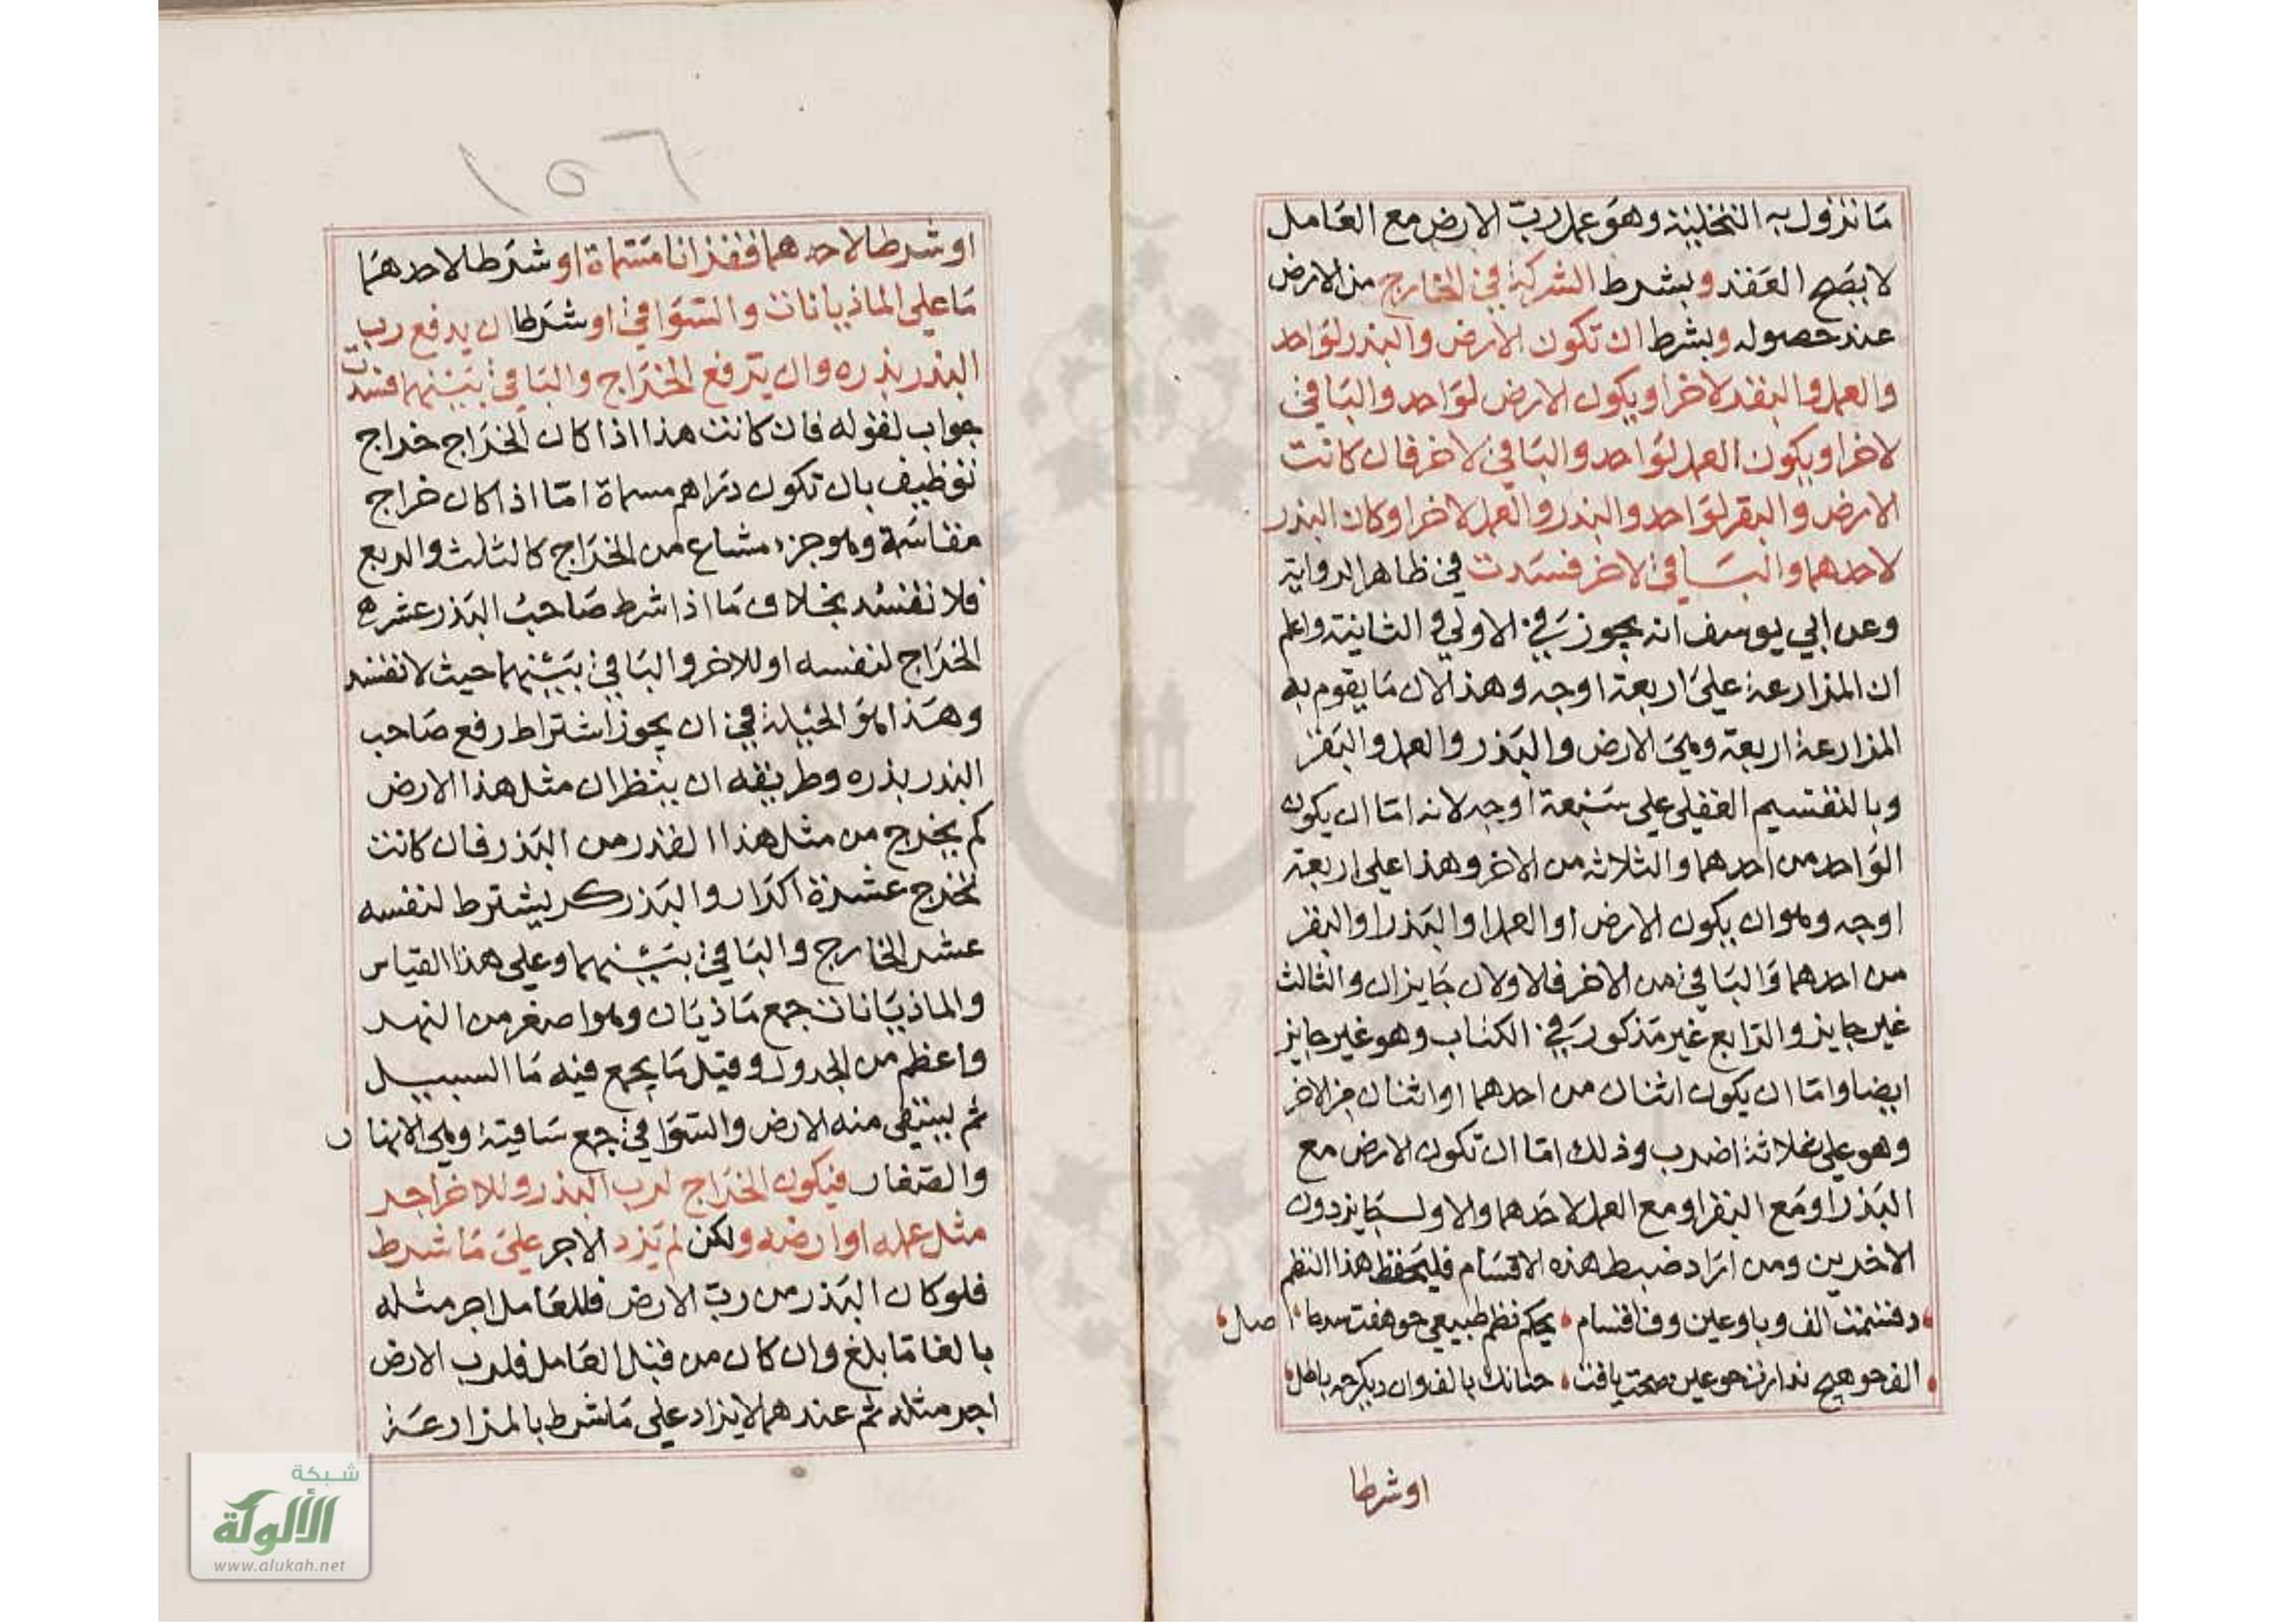 ما تزول به التخلية وهو عمل رب الارض مع العامل
لا يصح العقد وبشرط الشركة في الخارج من الارض
عند حصوله وبشرط ان تكون الارض والبذر لواحد
والعمل والبقر لاخر او يكون الارض لواحد والباقي
لاخر او يكون العمل لواحد والباقي لاخر فان كانت
الارض والبقر لواحد والبذر والعمل لاخر او كان البذر
لاحدهما والباقي لاخر فسدت في ظاهر الرواية
وعن ابي يوسف انه يجوز في الاولي والثانية واعلم
ان المزارعة علي اربعة اوجه وهذا لان ما يقوم به
المزارعة اربعة وهي الارض والبذر والعمل والبقر
وبالتقسيم العقلي علي سبعة اوجه لانه اما ان يكون
الواحد من احدهما والثلاثه من الاخر وهذا علي اربعة
اوجه وهو ان يكون الارض او العمل او البذر او البقر
من احدهما والباقي من الاخر فالاولان جايزان والثالث
غير جايز والرابع غير مذكور في الكتاب وهو غير جايز
ايضا واما ان يكون اثنان من احدهما او اثنان من الاخر
وهو علي ثلاثة اضرب وذلك اما ان تكون الارض مع
البذر او مع البقر او مع العمل لاحدهما والاول جايز دون
الاخرين ومن اراد ضبط هذه الاقسام فليحفظ هذا النظم
الف وبا وعين وقاف اقسام بحكم نظم طبيعي اصل
الف هيچ ندارد عين صحت يافت بالف وان ديكر باطل
او شرطا
١٥٦
او شرطا لاحدهما قفزانا مسماة او شرطا لاحدهما
ما علي الماذيانات والسواقي او شرطا ان يدفع رب
البذر بذره وان يرفع الخراج والباقي بينهما فسدت
جواب لقوله فان كانت هذا اذا كان الخراج خراج
توظيف بان تكون دراهم مسماة اما اذا كان خراج
مقاسمة وهو جزء مشاع من الخراج كالثلث والربع
فلا تفسد بخلاف ما اذا شرط صاحب البذر عشره
الخراج لنفسه او للاخر والباقي بينهما حيث لا تفسد
وهذا هو الحيلة في ان يجوز اشتراط رفع صاحب
البذر بذره وطريقه ان ينظر ان مثل هذا الارض
كم يخرج من مثل هذا القدر من البذر فان كانت
تخرج عشرة اكرار والبذر كر يشترط لنفسه
عشر الخارج والباقي بينهما وعلي هذا القياس
والماذيانات جمع ماذيان وهو اصغر من النهر
واعظم من الجدول وقيل ما يجمع فيه ما السيل
ثم يستقي منه الارض والسواقي جمع ساقية وهي الانهار
والصغار فيكون الخراج لرب البذر وللاخر اجر
مثل عمله او ارضه ولكن لم يزد الاجر علي ما شرط
فلو كان البذر من رب الارض فللعامل اجر مثله
بالغا ما بلغ وان كان من قبل العامل فلرب الارض
اجر مثله ثم عندهما لا يزاد علي ما شرط بالمزارعة
شبكة
الألوكة
www.alukah.net